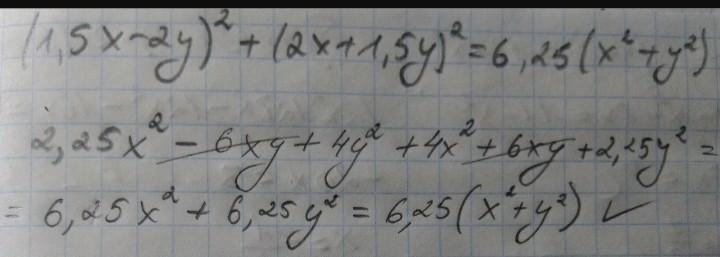 (1,5x-2y)² + (2x+1,5y)² = 6,25(x²+y²)
2,25x² - 6xy + 4y² + 4x² + 6xy + 2,25y² =
= 6,25x² + 6,25y² = 6,25(x²+y²) ✓